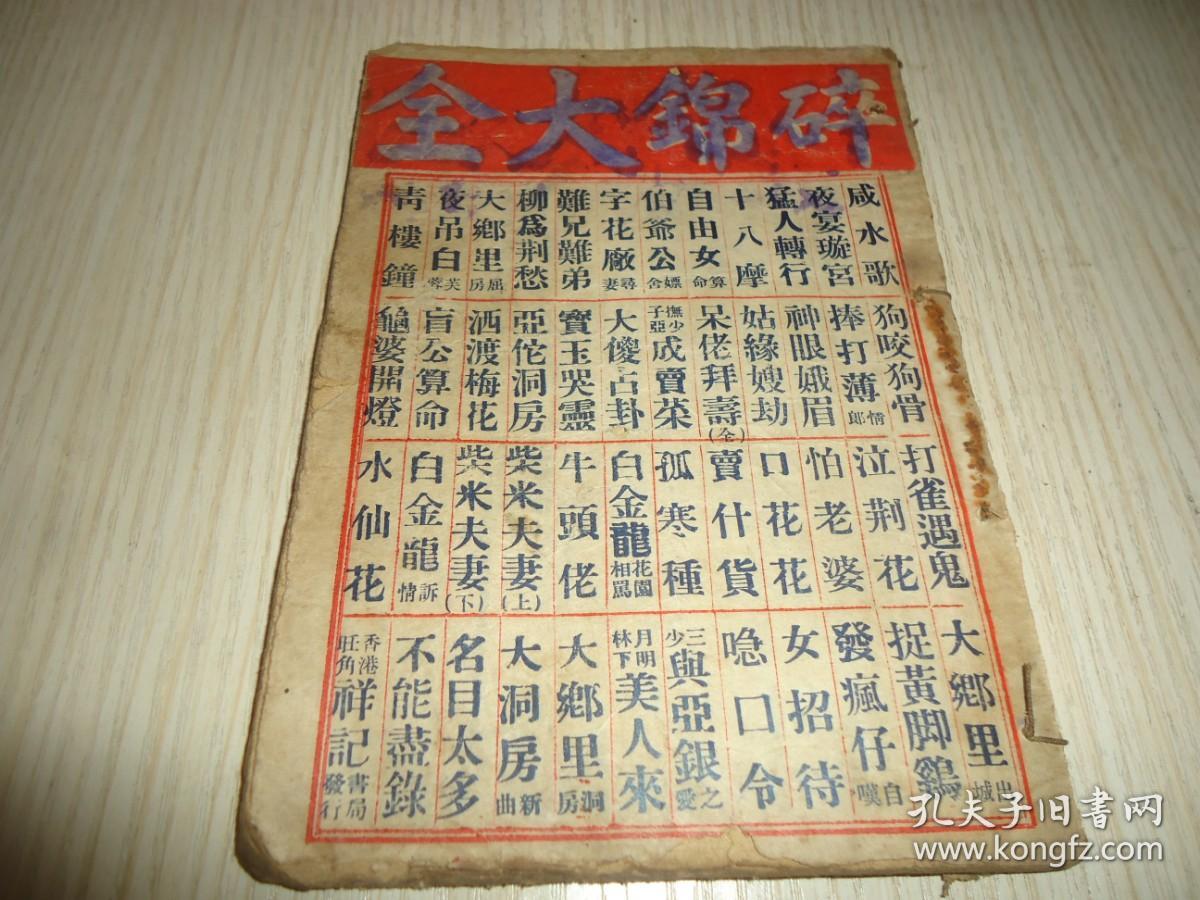 碎錦大全
咸水歌
夜宴璇宮
猛人轉行
十八摩
自由女算命
伯爺公嫖舍
字花廠尋妻
難兄難弟
柳為荆愁
大鄉里屈房
夜吊白芙蓉
靑樓鐘
狗咬狗骨
捧打薄情郎
神眼娥眉
姑緣嫂劫
呆佬拜壽(全)
撫少子亞成賣菜
大傻占卦
寶玉哭靈
亞佗洞房
洒渡梅花
盲公算命
龜婆開燈
打雀遇鬼
泣荆花
怕老婆
口花花
賣什貨
孤寒種
白金龍花園相罵
牛頭佬
柴米夫妻(上)
柴米夫妻(下)
白金龍訴情
水仙花
大鄉里出城
捉黃脚鷄
發瘋仔自嘆
女招待
急口令
三少與亞銀之愛
月明林下美人來
大鄉里洞房
大洞房新曲
名目太多
不能盡錄
香港旺角祥記書局發行
孔夫子旧书网
www.kongfz.com